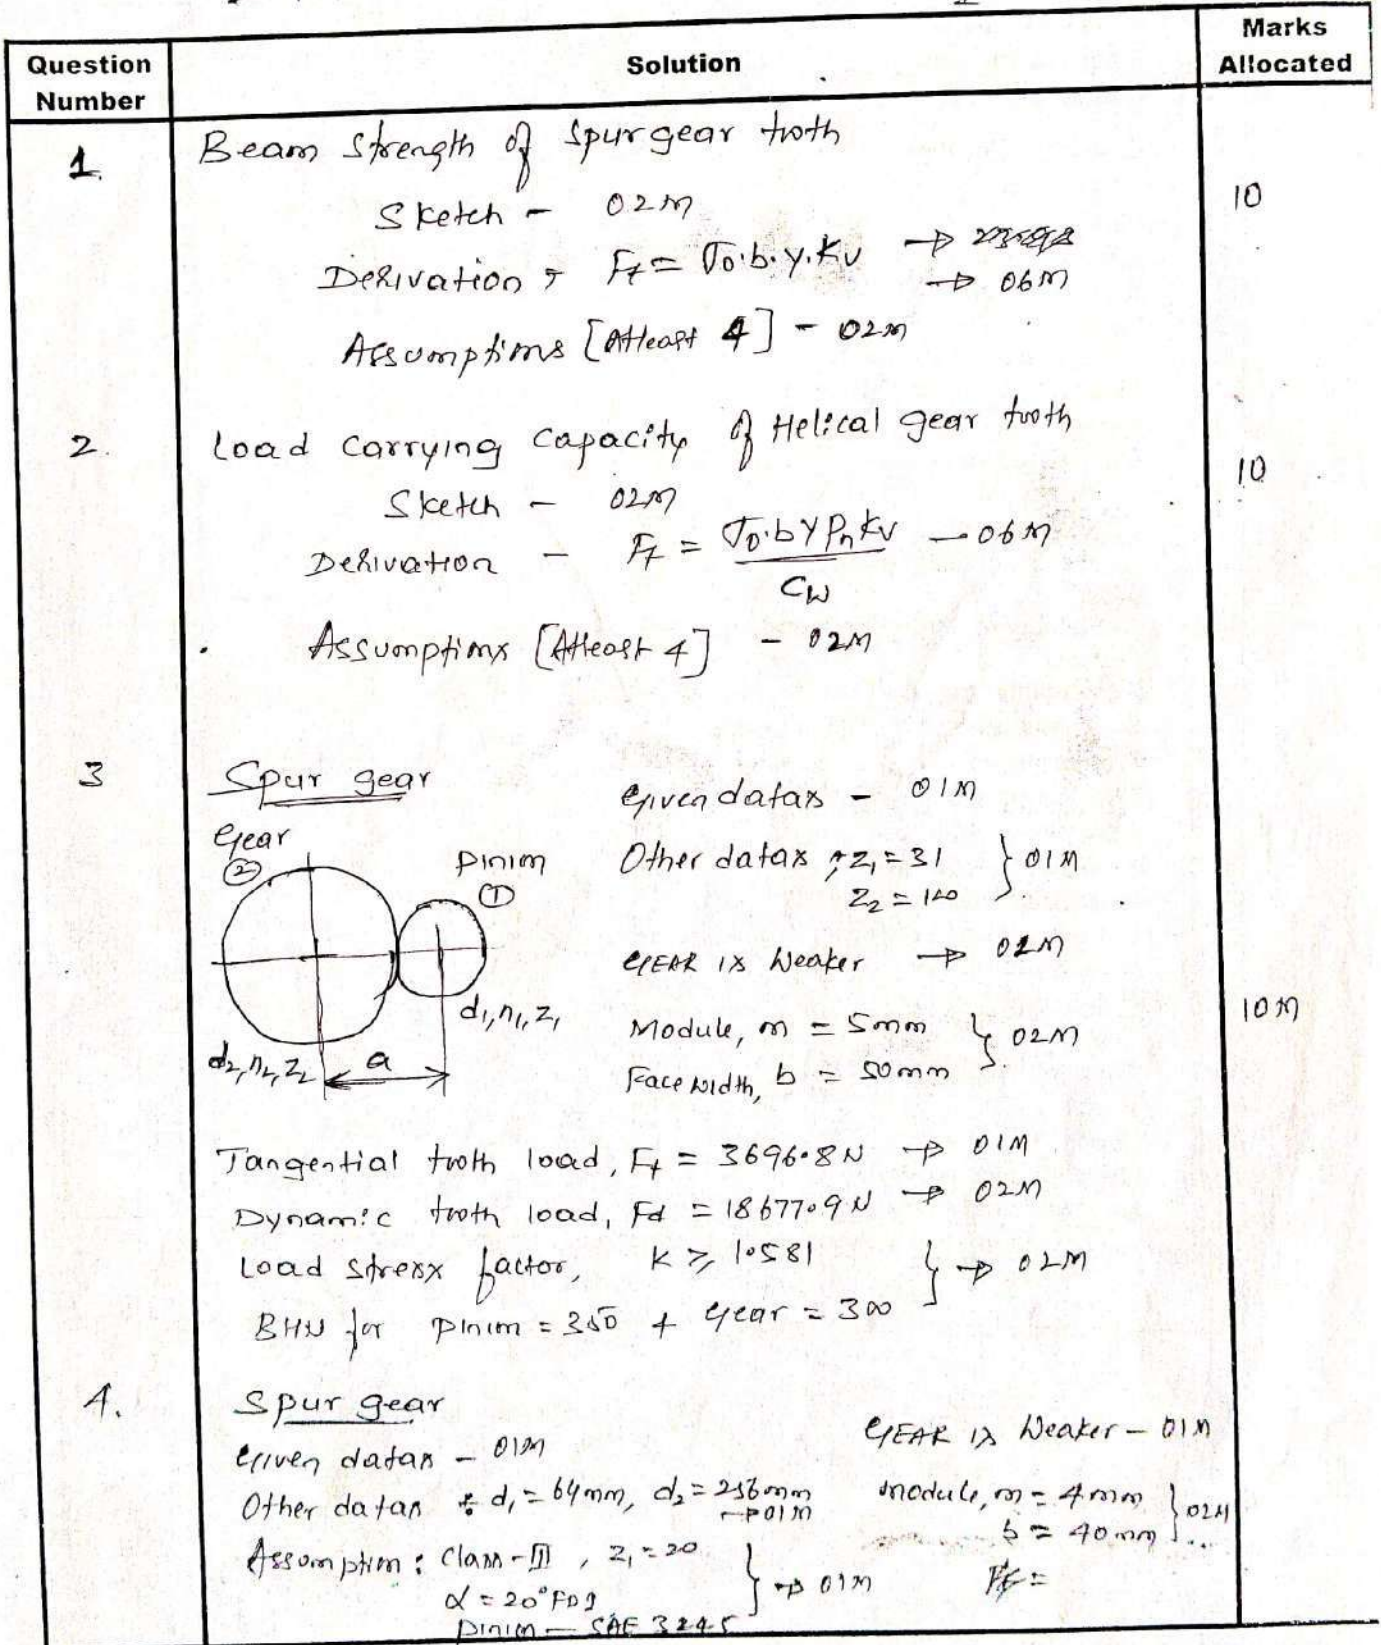 Question Number
Solution
Marks Allocated
1.
Beam Strength of Spur gear tooth
10
Sketch - 02M
Derivation, Ft = σo.b.y.Kv
→ 06M
Assumptions [Atleast 4] - 02M
2.
Load Carrying Capacity of Helical gear tooth
10
Sketch - 02M
Derivation - Ft = σo.bYPnKv / Cw - 06M
Assumptions [Atleast 4] - 02M
3
Spur gear
Given datas - 01M
Gear ②
Pinion ①
Other datas, Z1 = 31
Z2 = 120 } 01M
GEAR is Weaker → 02M
d1, n1, Z1
d2, n2, Z2
a
Module, m = 5mm
Face width, b = 50mm } 02M
10M
Tangential tooth load, Ft = 3696.8N → 01M
Dynamic tooth load, Fd = 18677.9N → 02M
Load stress factor, K ≥ 1.581
BHN for pinion = 350 + Gear = 300 } → 02M
4.
Spur gear
Given datas - 01M
GEAR is Weaker - 01M
Other datas : d1 = 64mm, d2 = 256mm
→ 01M
module, m = 4mm
b = 40mm } 02M
Assumption : Class-III, Z1 = 20
α = 20° FDI } → 01M
Pinion - SAE 3245